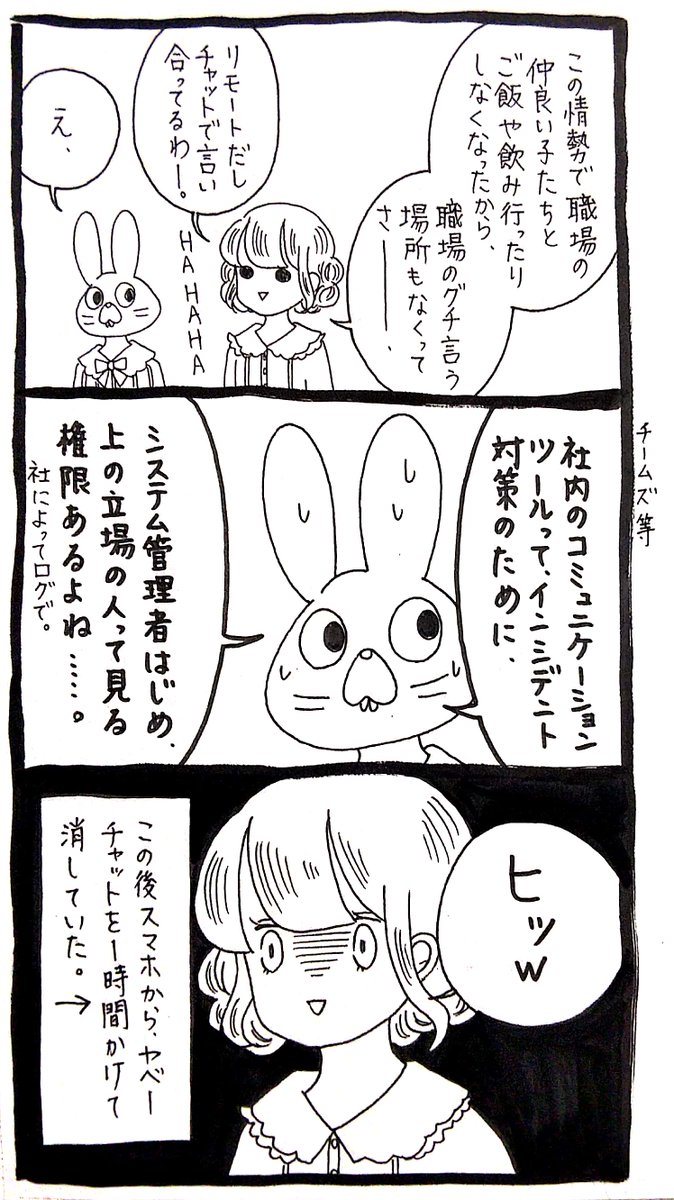 この情勢で職場の
仲良い子たちと
ご飯や飲み行ったり
しなくなったから、
職場のグチ言う
場所もなくって
さーー、
リモートだし
チャットで言い
合ってるわー。
HAHAHA
え、
チームズ等
社内のコミュニケーション
ツールって、インシデント
対策のために、
システム管理者はじめ、
上の立場の人って見る
権限あるよね……。
社によってログで。
ヒッw
この後スマホから、ヤベー
チャットを1時間かけて
消していた。→